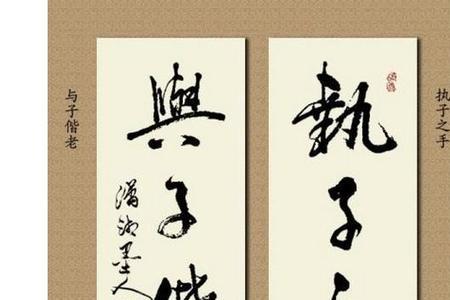 执子之手
執子
與子偕
潇湘墨人
与子偕老